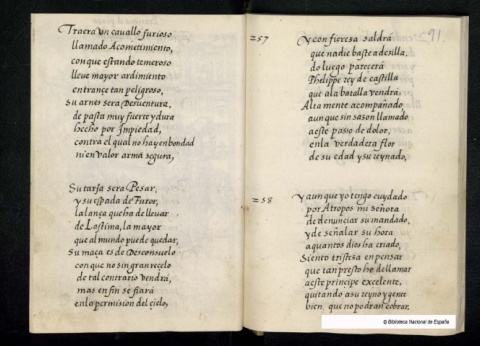 Traera vn cauallo furioso
llamado Acometimiento,
con que estando temeroso
lleue mayor ardimiento
en trançe tan peligroso,
Su arnes sera Desuentura,
de pasta muy fuerte y dura
hecho por Impiedad,
contra el qual no hay en bondad
ni en valor arma segura,
Su tarja sera Pesar,
y su espada de Furor,
la lança que ha de lleuar
de Lastima, la mayor
que al mundo puede quedar,
Su maça es de Desconsuelo
con que no sin gran reçelo
de tal contrario vendrá,
mas en fin se fiará
en lo permision del çielo,
57
Y con fieresa saldrá
que nadie baste a desilla,
do luego parecerá
Phelippe rey de castilla
que a la batalla vendrá,
Alta mente acompañado,
aun que sin sason llamado
a este passo de dolor,
en la verdadera flor
de su edad y su reynado,
58
Y aun que yo tengo cuydado
por Atropos mi señora
de denunciar su mandado,
y de señalar su hora
a quantos dios ha criado,
Siento tristesa en pensar
que tan presto he de llamar
a este principe excelente,
quitando a su reyno y gente
bien, que no podran cobrar.
291.
© Biblioteca Nacional de España